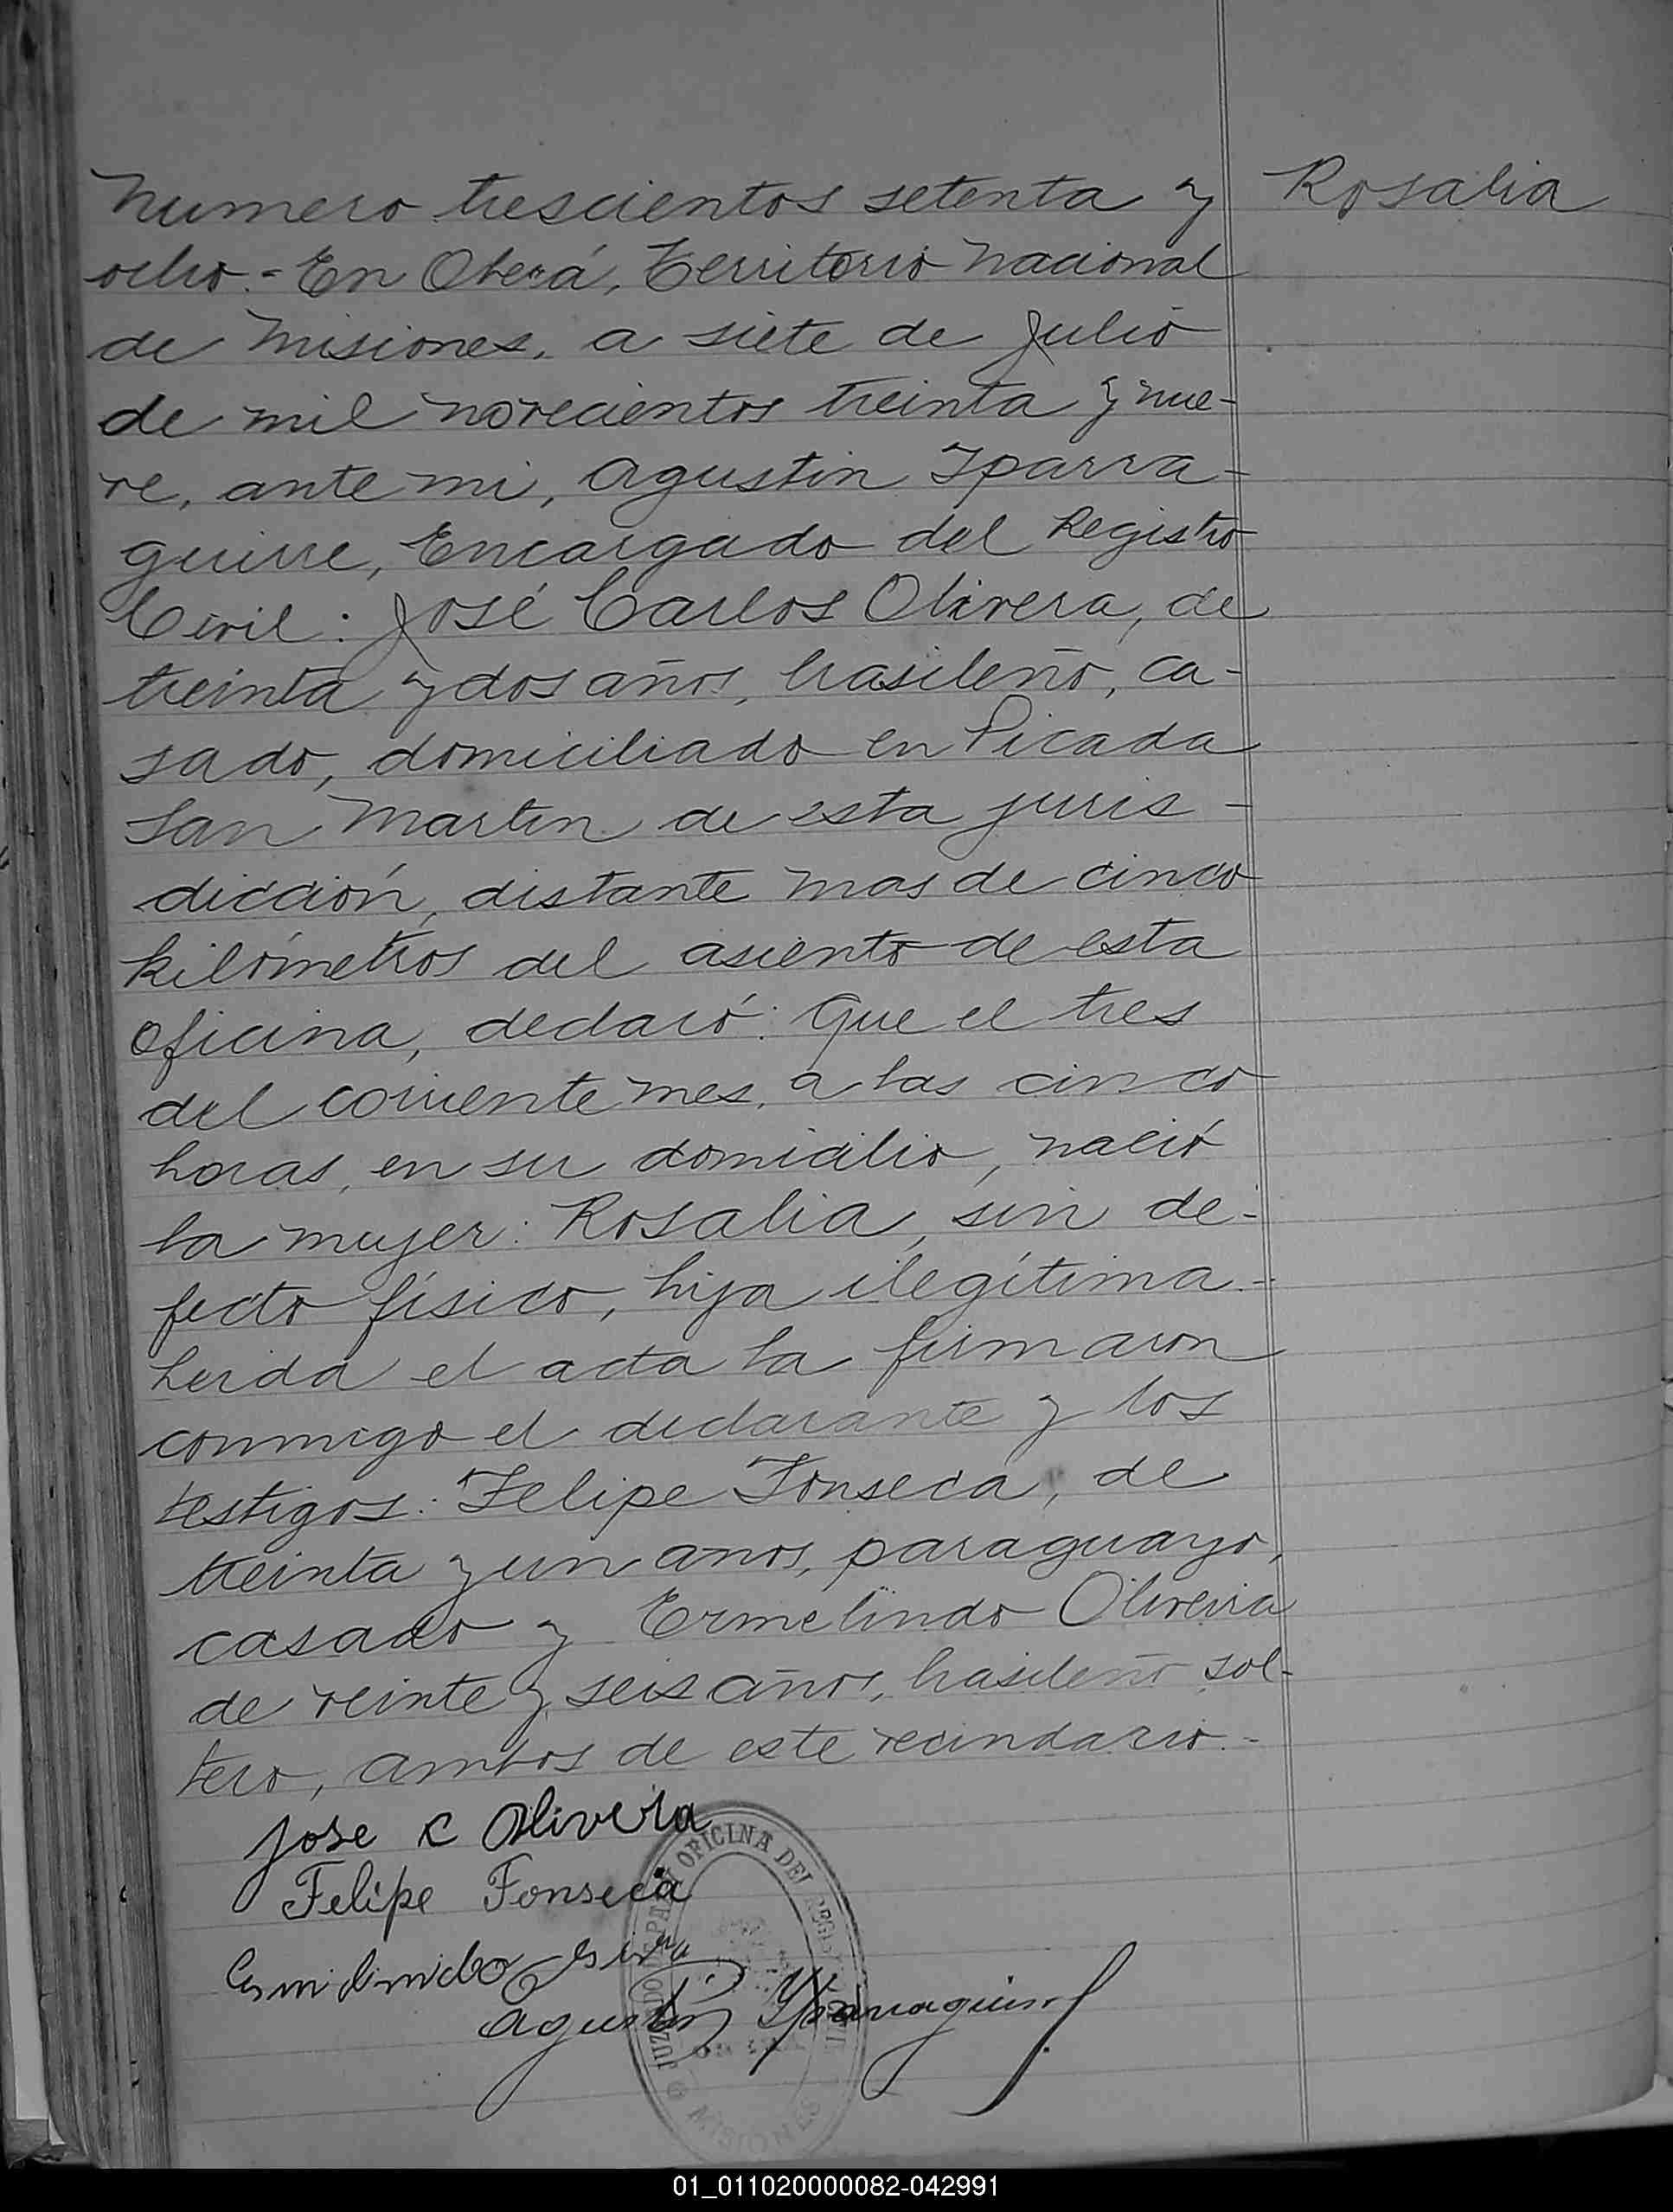 Rosalia
Numero trescientos setenta y
ocho.- En Oberá, Territorio Nacional
de Misiones, a siete de Julio
de mil novecientos treinta y nue-
ve, ante mi, Agustin Yparra-
guirre, Encargado del Registro
Civil: José Carlos Olivera, de
treinta y dos años, brasileño, ca-
sado, domiciliado en Picada
San Martin de esta juris-
dicción, distante mas de cinco
kilómetros del asiento de esta
oficina, declaró: Que el tres
del corriente mes, a las cinco
horas, en su domicilio, nació
la mujer: Rosalia, sin de-
fecto físico, hija ilegítima.-
Leida el acta la firmaron
conmigo el declarante y los
testigos: Felipe Fonseca, de
treinta y un anos, paraguayo,
casado y Ermelindo Oliveira
de veinte y seis años, brasileño sol-
tero, ambos de este vecindario.-
Jose C Olivera
Felipe Fonseca
Agustin Yparraguirre
OFICINA DEL REGISTRO CIVIL
JUZGADO DE PAZ
MISIONES
01_011020000082-042991